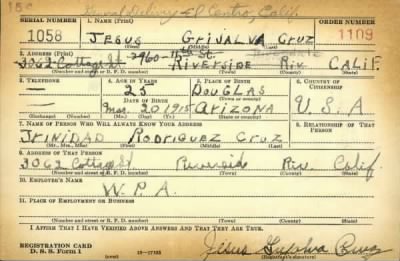 General Delivery El Centro, Calif.
SERIAL NUMBER 1. NAME (Print) ORDER NUMBER
1058 JESUS GRIJALVA CRUZ 1109
(First) (Middle) (Last)
2. ADDRESS (Print) 2960-11th St.
3062 Cottage St RIVERSIDE RIV. CALIF.
(Number and street or R. F. D. number) (Town) (County) (State)
3. TELEPHONE 4. AGE IN YEARS 5. PLACE OF BIRTH 6. COUNTRY OF CITIZENSHIP
— 25 DOUGLAS
DATE OF BIRTH (Town or county)
— Mar. 20 1915 ARIZONA U.S.A
(Exchange) (Number) (Mo.) (Day) (Yr.) (State or country)
7. NAME OF PERSON WHO WILL ALWAYS KNOW YOUR ADDRESS 8. RELATIONSHIP OF THAT PERSON
TRINIDAD RODRIGUEZ CRUZ
(Mr., Mrs., Miss) (First) (Middle) (Last)
9. ADDRESS OF THAT PERSON
3062 Cottage St Riverside Riv. Calif.
(Number and street or R. F. D. number) (Town) (County) (State)
10. EMPLOYER'S NAME
W.P.A.
11. PLACE OF EMPLOYMENT OR BUSINESS
(Number and street or R. F. D. number) (Town) (County) (State)
I AFFIRM THAT I HAVE VERIFIED ABOVE ANSWERS AND THAT THEY ARE TRUE.
REGISTRATION CARD
D. S. S. Form 1 Jesus Grijalva Cruz
(Registrant's signature)